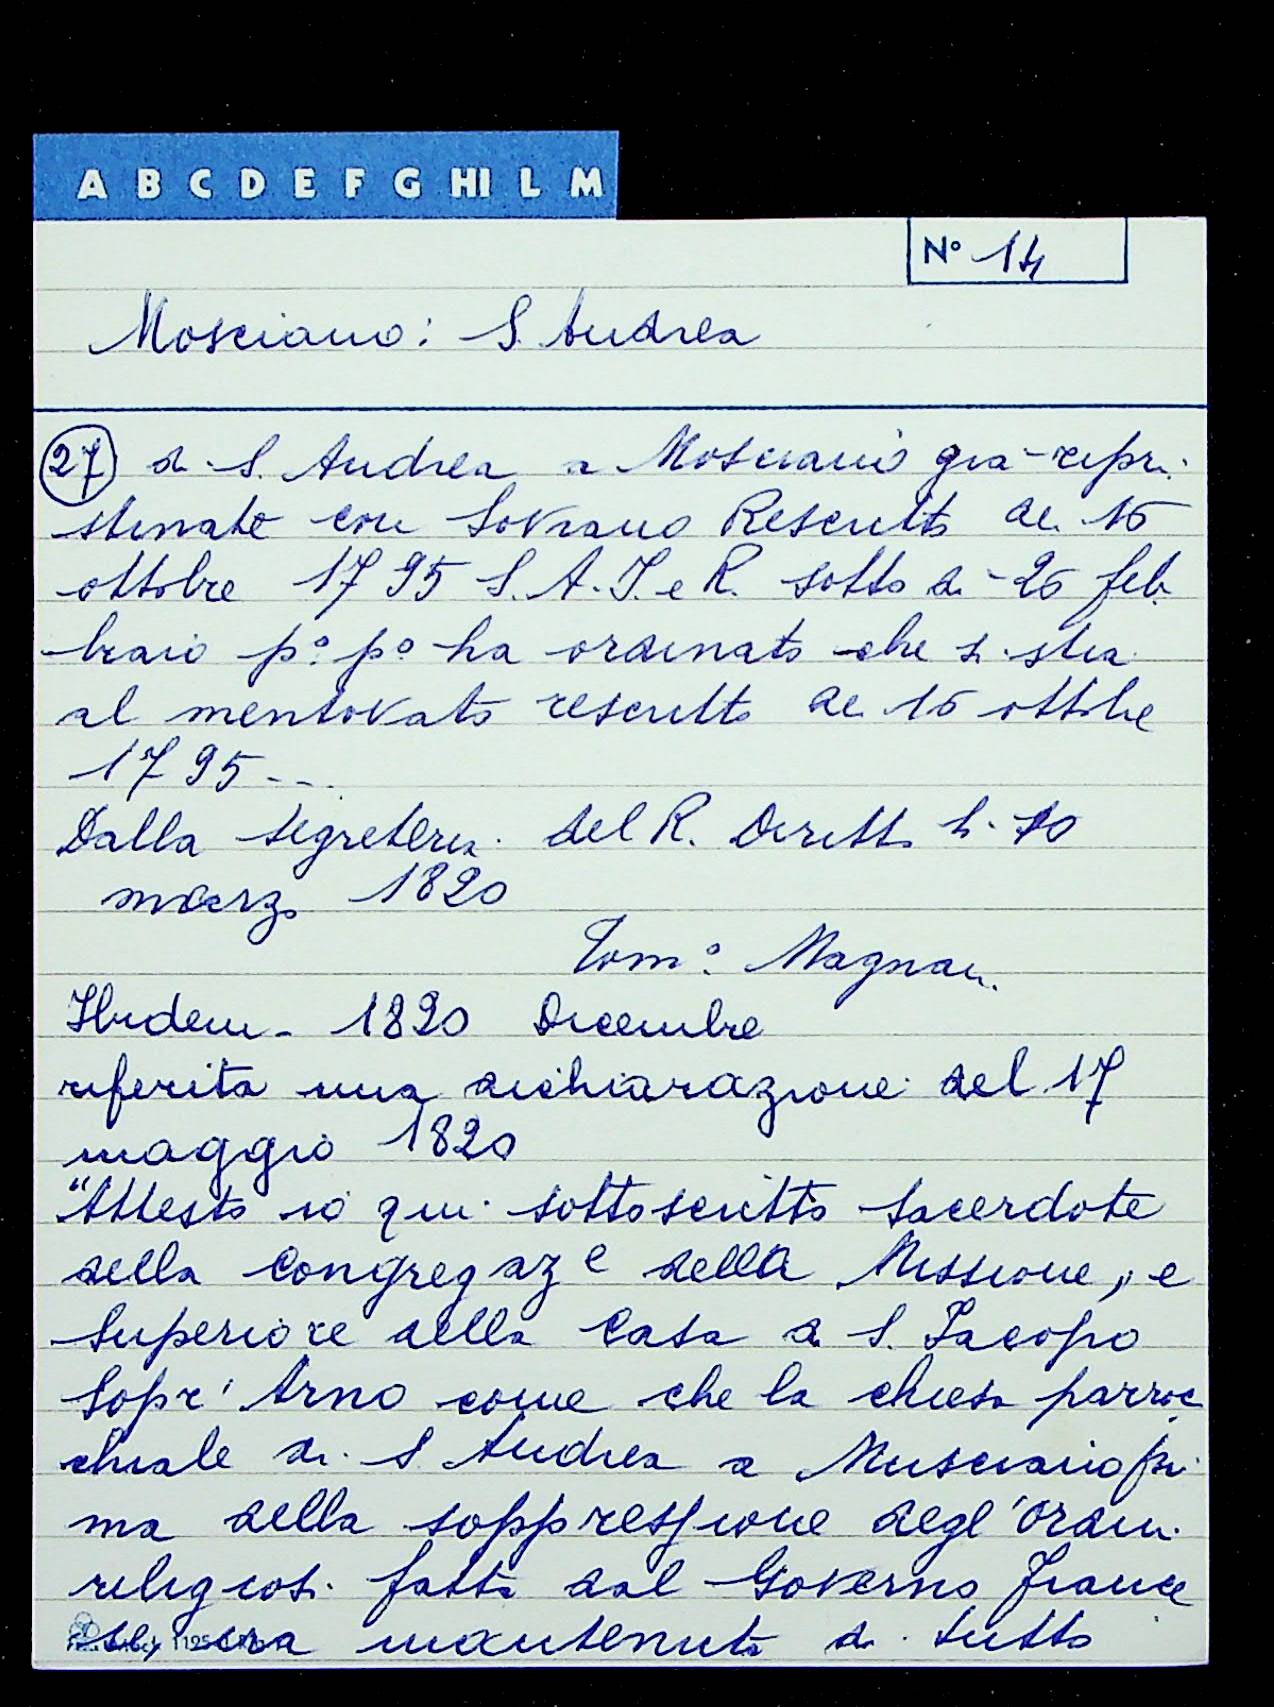 A B C D E F G HI L M
N° 14
Mosciano: S. Andrea
27 di S. Andrea a Mosciano già ripri-
stinato con Sovrano Rescritto de 16
ottobre 1795 S. A. I. e R. sotto di 26 feb.
braio p° p° ha ordinato che si stia
al mentovato rescritto de 16 ottobre
1795 - - .
Dalla Segreteria del R. Diritto li 10
marzo 1820
Tom° Magnani
Ibidem - 1820 Dicembre
riferita una dichiarazione del 17
maggio 1820
"Attesto io qui sottoscritto Sacerdote
della Congregaz e della Missione, e
Superiore della Casa di S. Jacopo
Sopr' Arno come che la chiesa parroc
chiale di S. Andrea a Musciano pri
ma della soppressione degl'ordini
religiosi fatta dal Governo France
se, era mantenuta di tutto